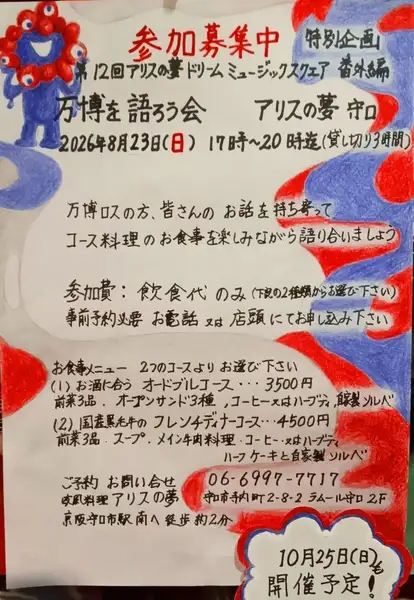 参加募集中
特別企画
第12回アリスの夢ドリームミュージックスクェア 番外編
万博を語ろう会 アリスの夢 守口
2026年8月23日(日) 17時~20時迄(貸し切り3時間)
万博ロスの方、皆さんの お話を持ち寄って
コース料理のお食事を楽しみながら語り合いましょう
参加費:飲食代のみ(下記の2種類からお選び下さい)
事前予約必要 お電話又は店頭にてお申し込み下さい
お食事メニュー 2つのコースよりお選び下さい
(1)お酒に合う オードブルコース・・・3500円
前菜3品、オープンサンド3種、コーヒー又はハーブティ、自家製ソルベ
(2)国産黒毛牛の フレンチディナーコース・・・4500円
前菜3品、スープ、メイン牛肉料理、コーヒー又はハーブティ
ハーフケーキと自家製ソルベ
ご予約 お問い合せ 06-6997-7717
欧風料理 アリスの夢 守口市寺内町2-8-2 ラムール守口2F
京阪守口市駅南へ徒歩約2分
10月25日(日)も
開催予定!